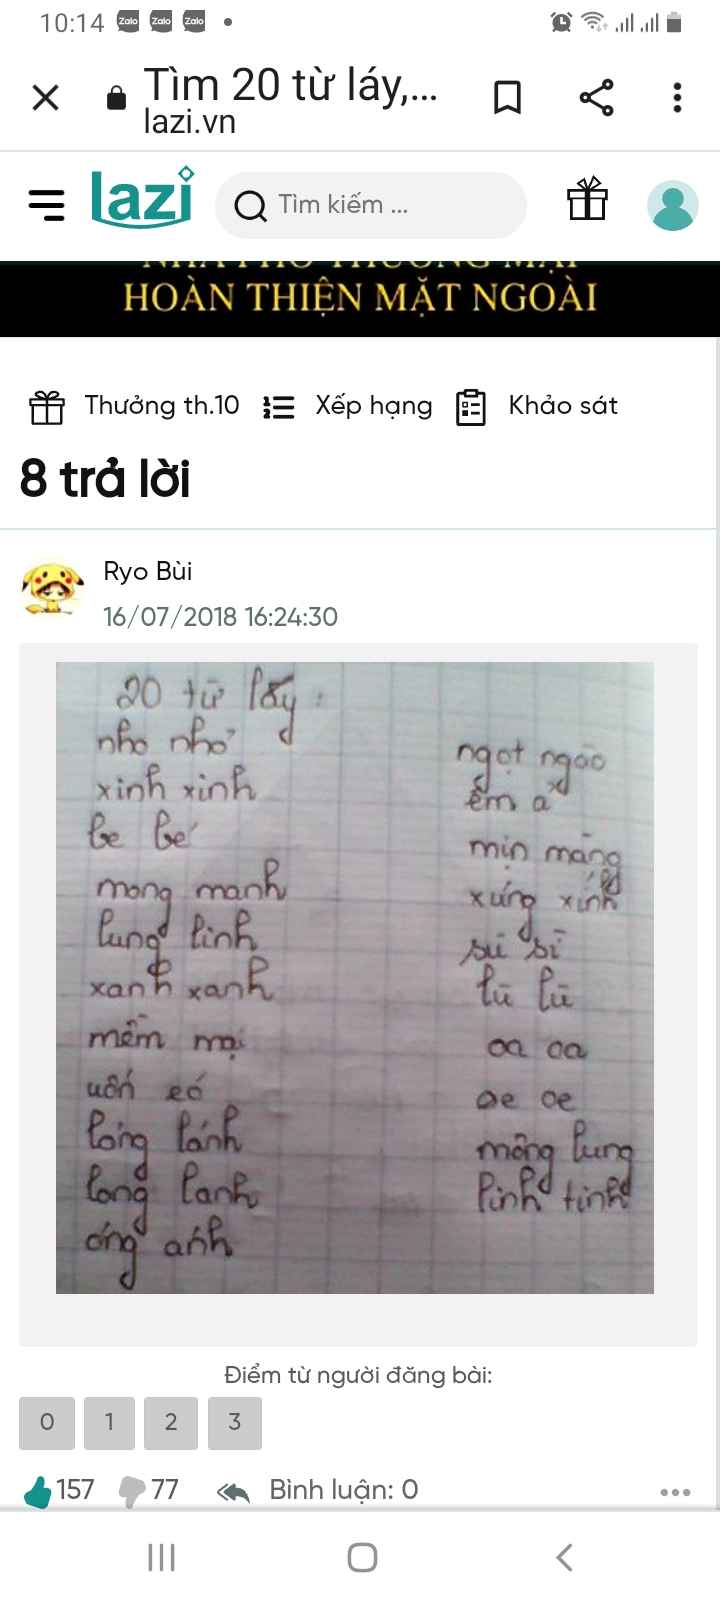 10:14 Zalo Zalo Zalo
Tìm 20 từ láy,...
lazi.vn
lazi
Tìm kiếm ...
NHÀ PHỐ THƯƠNG MẠI
HOÀN THIỆN MẶT NGOÀI
Thưởng th.10 Xếp hạng Khảo sát
8 trả lời
Ryo Bùi
16/07/2018 16:24:30
20 từ láy :
nho nhỏ
xinh xinh
be bé
mong manh
lung linh
xanh xanh
mềm mại
uốn éo
lóng lánh
long lanh
óng ánh
ngọt ngào
êm ả
mịn màng
xúng xính
sù sì
lũ lũ
oa oa
oe oe
mông lung
linh tinh
Điểm từ người đăng bài:
0 1 2 3
157 77 Bình luận: 0